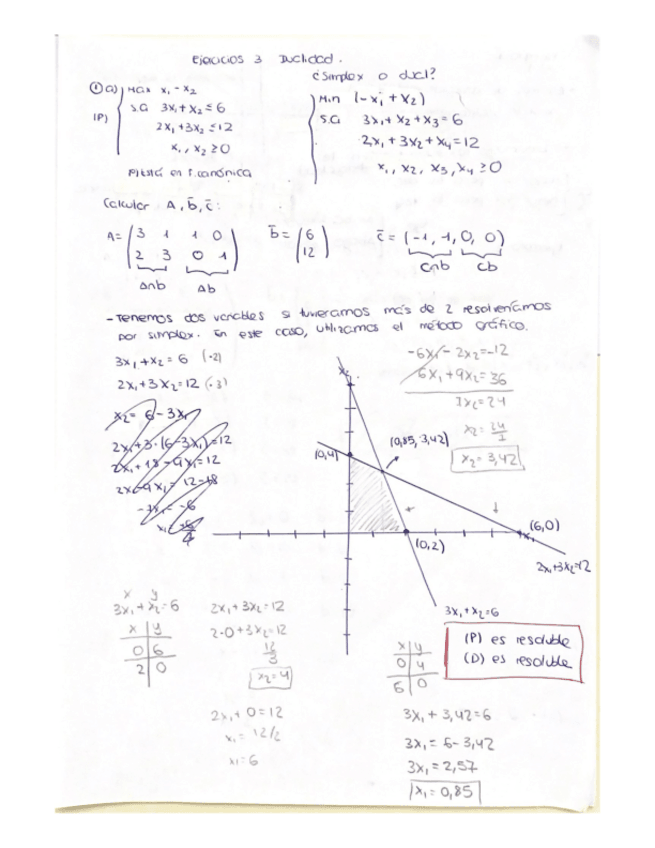 Ejercicios 3 Dualidad.
¿Simplex o dual?
① a) Max x₁ - x₂
(P)
s.a 3x₁ + x₂ ≤ 6
2x₁ + 3x₂ ≤ 12
x₁, x₂ ≥ 0
Min (-x₁ + x₂)
S.a 3x₁ + x₂ + x₃ = 6
2x₁ + 3x₂ + x₄ = 12
x₁, x₂, x₃, x₄ ≥ 0
P está en F. canónica
Calcular A, b̄, c̄:
A = (3 1 1 0
2 3 0 1)
Anb Ab
b̄ = (6
12)
c̄ = (-1, -1, 0, 0)
Cnb Cb
- Tenemos dos variables si tuvieramos más de 2 resolveríamos
por simplex. En este caso, utilizamos el método gráfico.
3x₁ + x₂ = 6 (·2)
2x₁ + 3x₂ = 12 (·3)
x₂ = 6 - 3x₁
2x₁ + 3·(6 - 3x₁) = 12
2x₁ + 18 - 9x₁ = 12
2x₁ - 9x₁ = 12 - 18
-7x₁ = -6
-6x₁ - 2x₂ = -12
6x₁ + 9x₂ = 36
7x₂ = 24
x₂ = 24/7
x₂ = 3,42
x₂
(0,4)
(0,85, 3,42)
(6,0)
x₁
(0,2)
2x₁+3x₂=12
3x₁+x₂=6
x y
3x₁ + x₂ = 6
x y
0 6
2 0
2x₁ + 3x₂ = 12
2·0 + 3x₂ = 12
12/3
x₂ = 4
2x₁ + 0 = 12
x₁ = 12/2
x₁ = 6
(P) es resoluble
(D) es resoluble
x y
0 4
6 0
3x₁ + 3,42 = 6
3x₁ = 6 - 3,42
3x₁ = 2,57
x₁ = 0,85